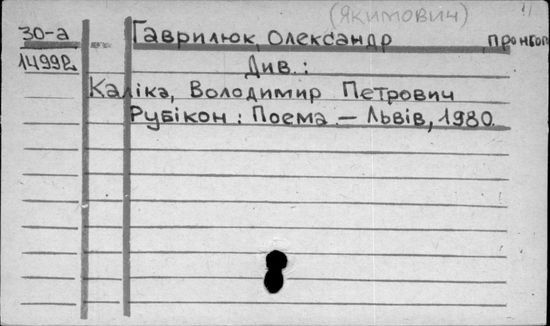 (Якимович)
30-а Гаврилюк, Олександр про нього
14992 Див.:
Каліка, Володимир Петрович
Рубікон : Поема. — Львів, 1980.